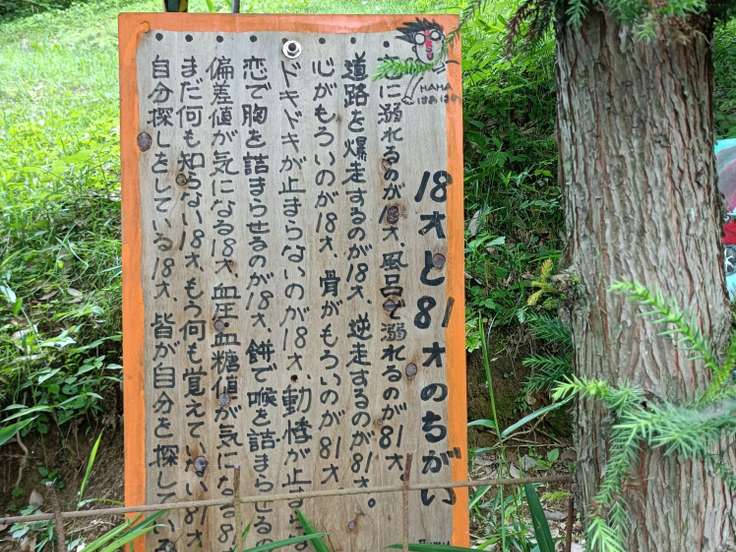 HAHA
18才と81才のちがい
・恋に溺れるのが18才、風呂で溺れるのが81才。
・道路を爆走するのが18才、逆走するのが81才。
・心がもろいのが18才、骨がもろいのが81才
・ドキドキが止まらないのが18才・動悸が止まら
・恋で胸を詰まらせるのが18才、餅で喉を詰まらせるの
・偏差値が気になる18才、血圧・血糖値が気になる8
・まだ何も知らない18才、もう何も覚えていない81才
・自分探しをしている18才、皆が自分を探している